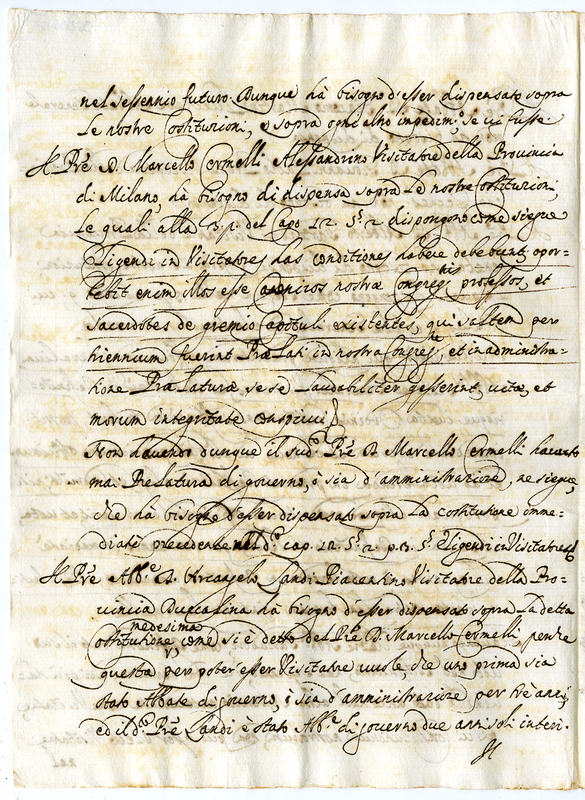 nel sessennio futuro. Dunque hà bisogno d'esser dispensato sopra
Le nostre Costituzioni, e sopra ogni altro impedim.º se vi fusse.
Il Pre D. Marcello Cermelli Alessandrino Visitatre della Provincia
di Milano, hà bisogno di dispensa sopra Le nostre Costituzioni,
Le quali alla 3. p. del Capo 12. §. 2 dispongono come siegue
Eligendi in Visitatores has conditiones habere debebunt, opor=
tebit enim illos esse Canonicos nostræ Congregnis professos, et
sacerdotes de gremio Capituli existentes, qui saltem per
triennium fuerint Prælati in nostra Congregne, et in administra=
tione Prælaturæ se se laudabiliter gesserint, vitæ, et
morum integritate conspicui
Non havendo dunque il sud.º Pre D. Marcello Cermelli havuto
mai Prelatura di governo, ò sia d'amministrazione, ne siegue,
che hà bisogno d'esser dispensato sopra La costituzione imme=
diatè precedente nel d.º cap. 12. §. 2. p. 3. §. Eligendi in Visitatores
Il Pre Abb.e D. Arcangelo Landi Piacentino Visitatre della Pro=
vincia hà bisogno d'esser dispensato sopra La detta
medesima
Costituzione, come si è detto del Pre D. Marcello Cermelli, perche
questa per poter esser Visitatre vuole, che uno prima sia
stato Abbate di governo, ò sia d'amministrazione per trè anni,
ed il d.º Pre Landi è stato Abb.e di governo due anni soli interi.
Il